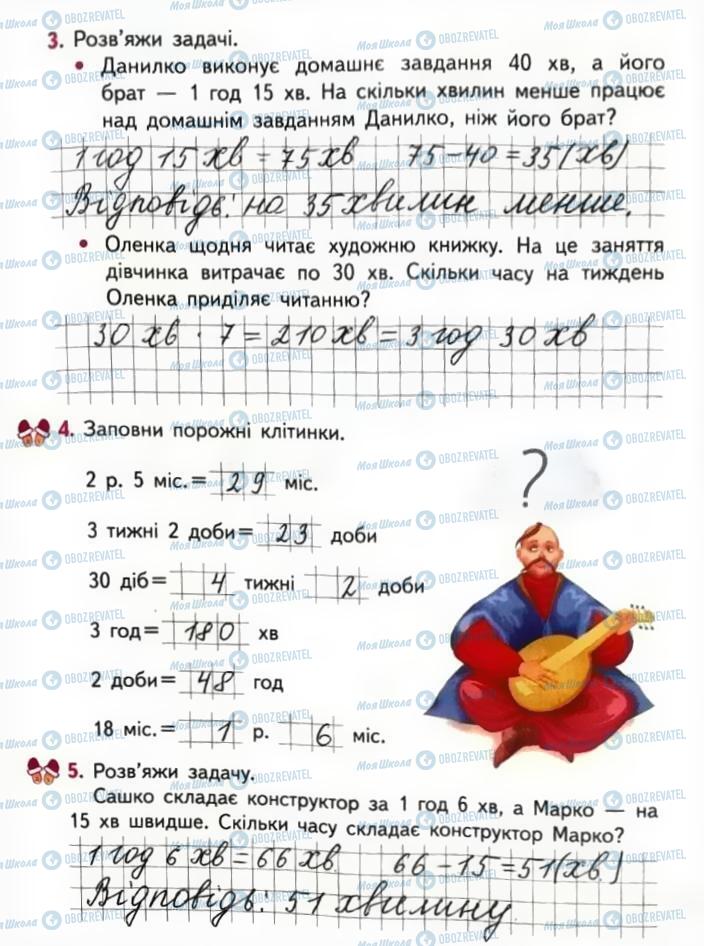 3. Розв'яжи задачі.
• Данилко виконує домашнє завдання 40 хв, а його
брат — 1 год 15 хв. На скільки хвилин менше працює
над домашнім завданням Данилко, ніж його брат?
1 год 15 хв = 75 хв 75 - 40 = 35 (хв)
Відповідь: на 35 хвилин менше.
• Оленка щодня читає художню книжку. На це заняття
дівчинка витрачає по 30 хв. Скільки часу на тиждень
Оленка приділяє читанню?
30 хв · 7 = 210 хв = 3 год 30 хв
4. Заповни порожні клітинки.
2 р. 5 міс. = 29 міс.
?
3 тижні 2 доби = 23 доби
30 діб = 4 тижні 2 доби
3 год = 180 хв
2 доби = 48 год
18 міс. = 1 р. 6 міс.
5. Розв'яжи задачу.
Сашко складає конструктор за 1 год 6 хв, а Марко — на
15 хв швидше. Скільки часу складає конструктор Марко?
1 год 6 хв = 66 хв 66 - 15 = 51 (хв.)
Відповідь: 51 хвилину.
МояШкола OBOZREVATEL